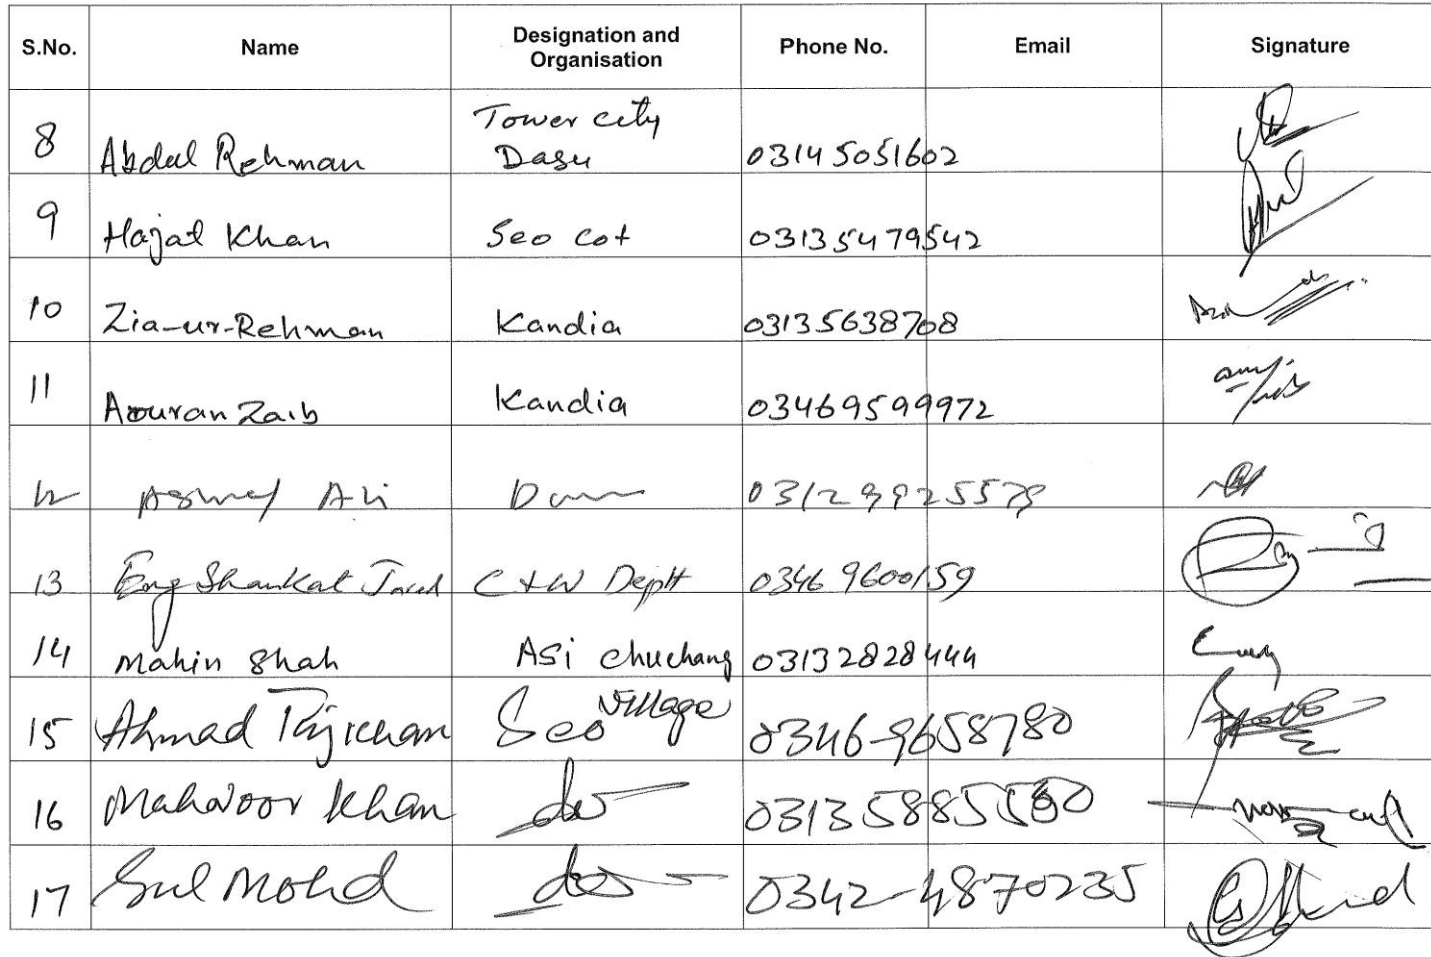 S.No. Name Designation and Organisation Phone No. Email Signature
8 Abdul Rehman Tower city Dasu 03145051602
9 Hajat Khan Seo cot 03135479542
10 Zia-ur-Rehman Kandia 03135638708
11 Aouran Zaib Kandia 03469599972
12 Ali
13 Eng Shaukat Javed C+W Deptt 03469600159
14 Mahin Shah ASi chuchang 03132828444
15 Ahmad Seo Village 0346-9658780
16 Khan do
17 Gul Mohd do 0342-4870235